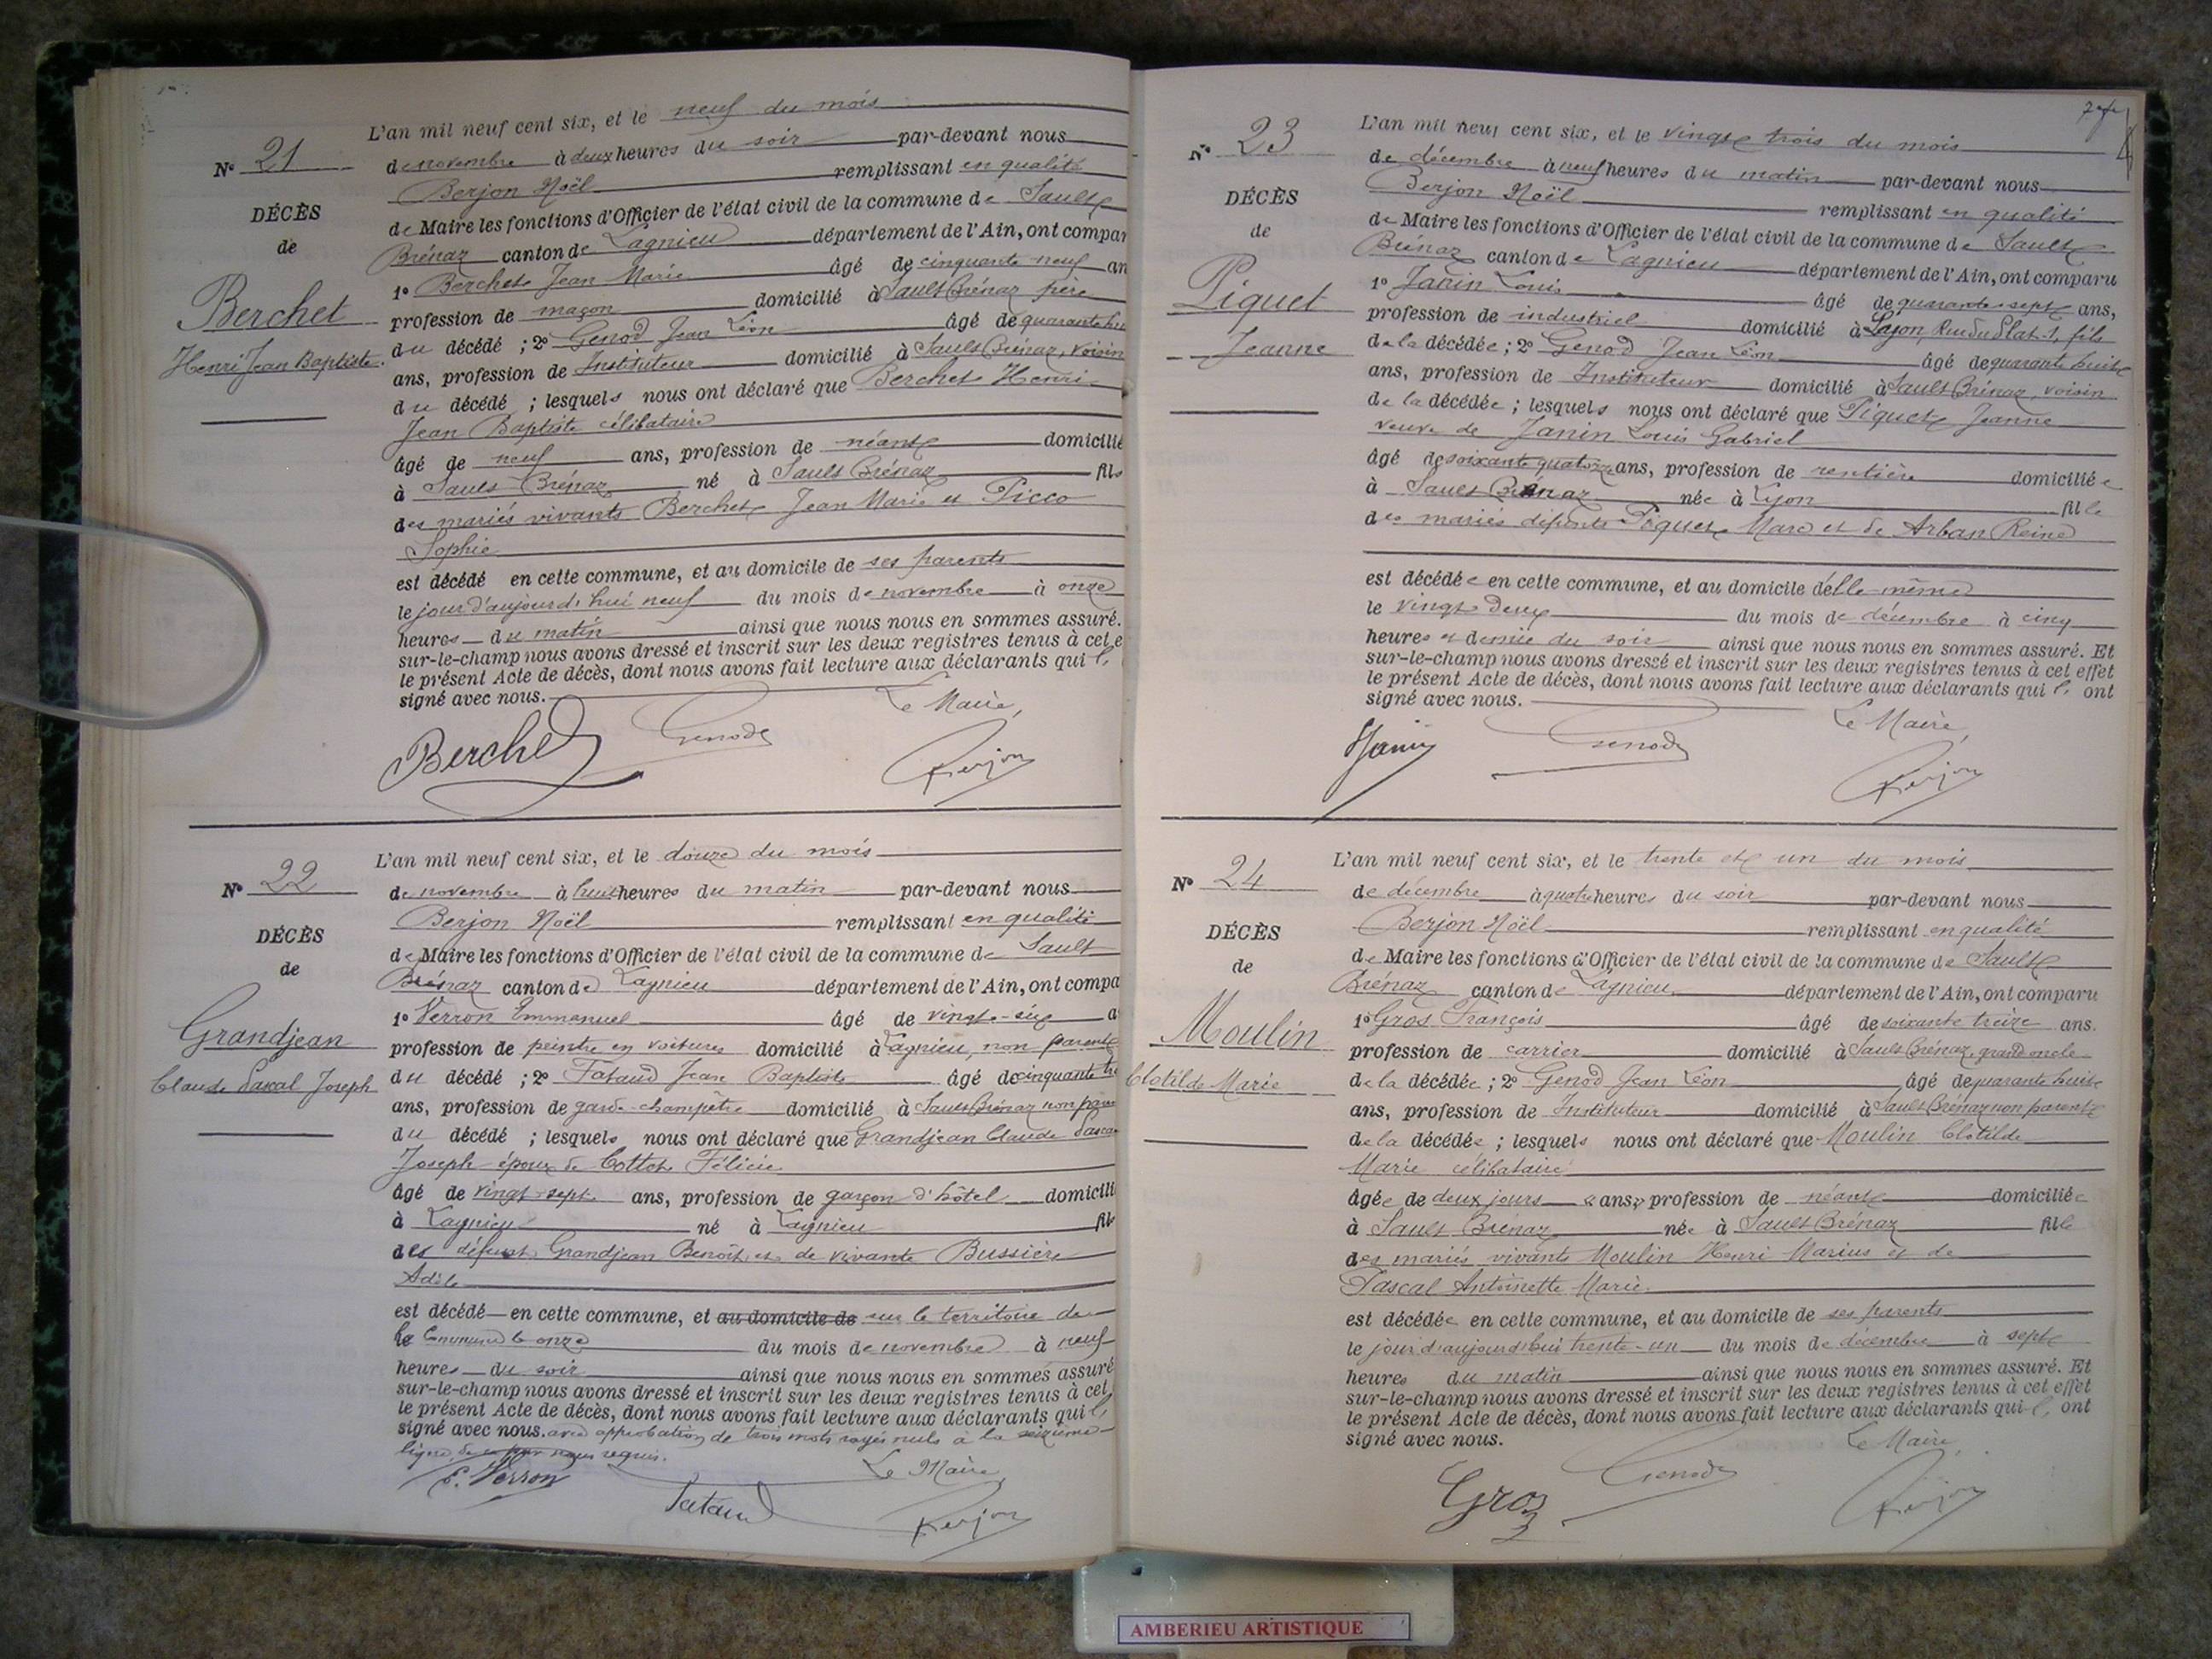 N° 21
DÉCÈS
de
Berchet
Henri Jean Baptiste.
L'an mil neuf cent six, et le neuf du mois
de novembre à deux heures du soir par-devant nous
Berjon Noël remplissant en qualité
de Maire les fonctions d'Officier de l'état civil de la commune de Sault
Brénaz canton de Lagnieu département de l'Ain, ont compar
1° Berchet Jean Marie âgé de cinquante neuf an
profession de maçon domicilié à Sault Brénaz père
du décédé ; 2° Genod Jean Léon âgé de quarante hu
ans, profession de Instituteur domicilié à Sault Brénaz, voisin
du décédé ; lesquels nous ont déclaré que Berchet Henri
Jean Baptiste célibataire
âgé de neuf ans, profession de néant domicilié
à Sault Brénaz né à Sault Brénaz fils
des mariés vivants Berchet Jean Marie et Picco
Sophie
est décédé en cette commune, et au domicile de ses parents
le jour d'aujourd'hui neuf du mois de novembre à onze
heures du matin ainsi que nous nous en sommes assuré.
sur-le-champ nous avons dressé et inscrit sur les deux registres tenus à cet e
le présent Acte de décès, dont nous avons fait lecture aux déclarants qui
signé avec nous.
Le Maire,
Berchet Genod Berjon
N° 22
DÉCÈS
de
Grandjean
Claude Pascal Joseph
L'an mil neuf cent six, et le douze du mois
de novembre à huit heures du matin par-devant nous
Berjon Noël remplissant en qualité
de Maire les fonctions d'Officier de l'état civil de la commune de Sault
Brénaz canton de Lagnieu département de l'Ain, ont compa
1° Verron Emmanuel âgé de vingt-six a
profession de peintre en voitures domicilié à Lagnieu, non parent
du décédé ; 2° Jean Baptiste âgé de cinquante
ans, profession de garde-champêtre domicilié à Sault Brénaz non
du décédé ; lesquels nous ont déclaré que Grandjean Claude Pascal
Joseph époux de Cottet Félicie
âgé de vingt-sept ans, profession de garçon d'hôtel domicili
à Lagnieu né à Lagnieu fils
des défunt Grandjean Benoît et de vivante Bussière
Adèle
est décédé en cette commune, et au domicile de sur le territoire de
la Commune le onze du mois de novembre à neuf
heures du soir ainsi que nous nous en sommes assuré
sur-le-champ nous avons dressé et inscrit sur les deux registres tenus à cet
le présent Acte de décès, dont nous avons fait lecture aux déclarants qui
signé avec nous. avec approbation de trois mots rayés nuls à la seizième
ligne
Le Maire
E. Verron Berjon
N° 23
DÉCÈS
de
Piquet
Jeanne
L'an mil neuf cent six, et le vingt trois du mois
de décembre à neuf heures du matin par-devant nous
Berjon Noël remplissant en qualité
de Maire les fonctions d'Officier de l'état civil de la commune de Sault
Brénaz canton de Lagnieu département de l'Ain, ont comparu
1° Janin Louis âgé de quarante-sept ans,
profession de industriel domicilié à Lyon, Rue du Plat-1, fils
de la décédée ; 2° Genod Jean Léon âgé de quarante huit
ans, profession de Instituteur domicilié à Sault Brénaz, voisin
de la décédée ; lesquels nous ont déclaré que Piquet Jeanne
veuve de Janin Louis Gabriel
âgé de soixante quatorze ans, profession de rentière domiciliée
à Sault Brénaz née à Lyon fille
des mariés défunts Piquet Marc et de Arban Reine
est décédée en cette commune, et au domicile d'elle-même
le vingt deux du mois de décembre à cinq
heures et demie du soir ainsi que nous nous en sommes assuré. Et
sur-le-champ nous avons dressé et inscrit sur les deux registres tenus à cet effet
le présent Acte de décès, dont nous avons fait lecture aux déclarants qui ont
signé avec nous.
Le Maire,
Janin Genod Berjon
N° 24
DÉCÈS
de
Moulin
Clotilde Marie
L'an mil neuf cent six, et le trente et un du mois
de décembre à quatre heures du soir par-devant nous
Berjon Noël remplissant en qualité
de Maire les fonctions d'Officier de l'état civil de la commune de Sault
Brénaz canton de Lagnieu département de l'Ain, ont comparu
1° Gros François âgé de soixante treize ans.
profession de carrier domicilié à Sault Brénaz, grand oncle
de la décédée ; 2° Genod Jean Léon âgé de quarante huit
ans, profession de Instituteur domicilié à Sault Brénaz non parent
de la décédée ; lesquels nous ont déclaré que Moulin Clotilde
Marie célibataire
âgée de deux jours « ans » profession de néant domiciliée
à Sault Brénaz née à Sault Brénaz fille
des mariés vivants Moulin Henri Marius et de
Pascal Antoinette Marie.
est décédée en cette commune, et au domicile de ses parents
le jour d'aujourd'hui trente-un du mois de décembre à sept
heures du matin ainsi que nous nous en sommes assuré. Et
sur-le-champ nous avons dressé et inscrit sur les deux registres tenus à cet effet
le présent Acte de décès, dont nous avons fait lecture aux déclarants qui ont
signé avec nous.
Le Maire,
Gros Genod Berjon
AMBERIEU ARTISTIQUE